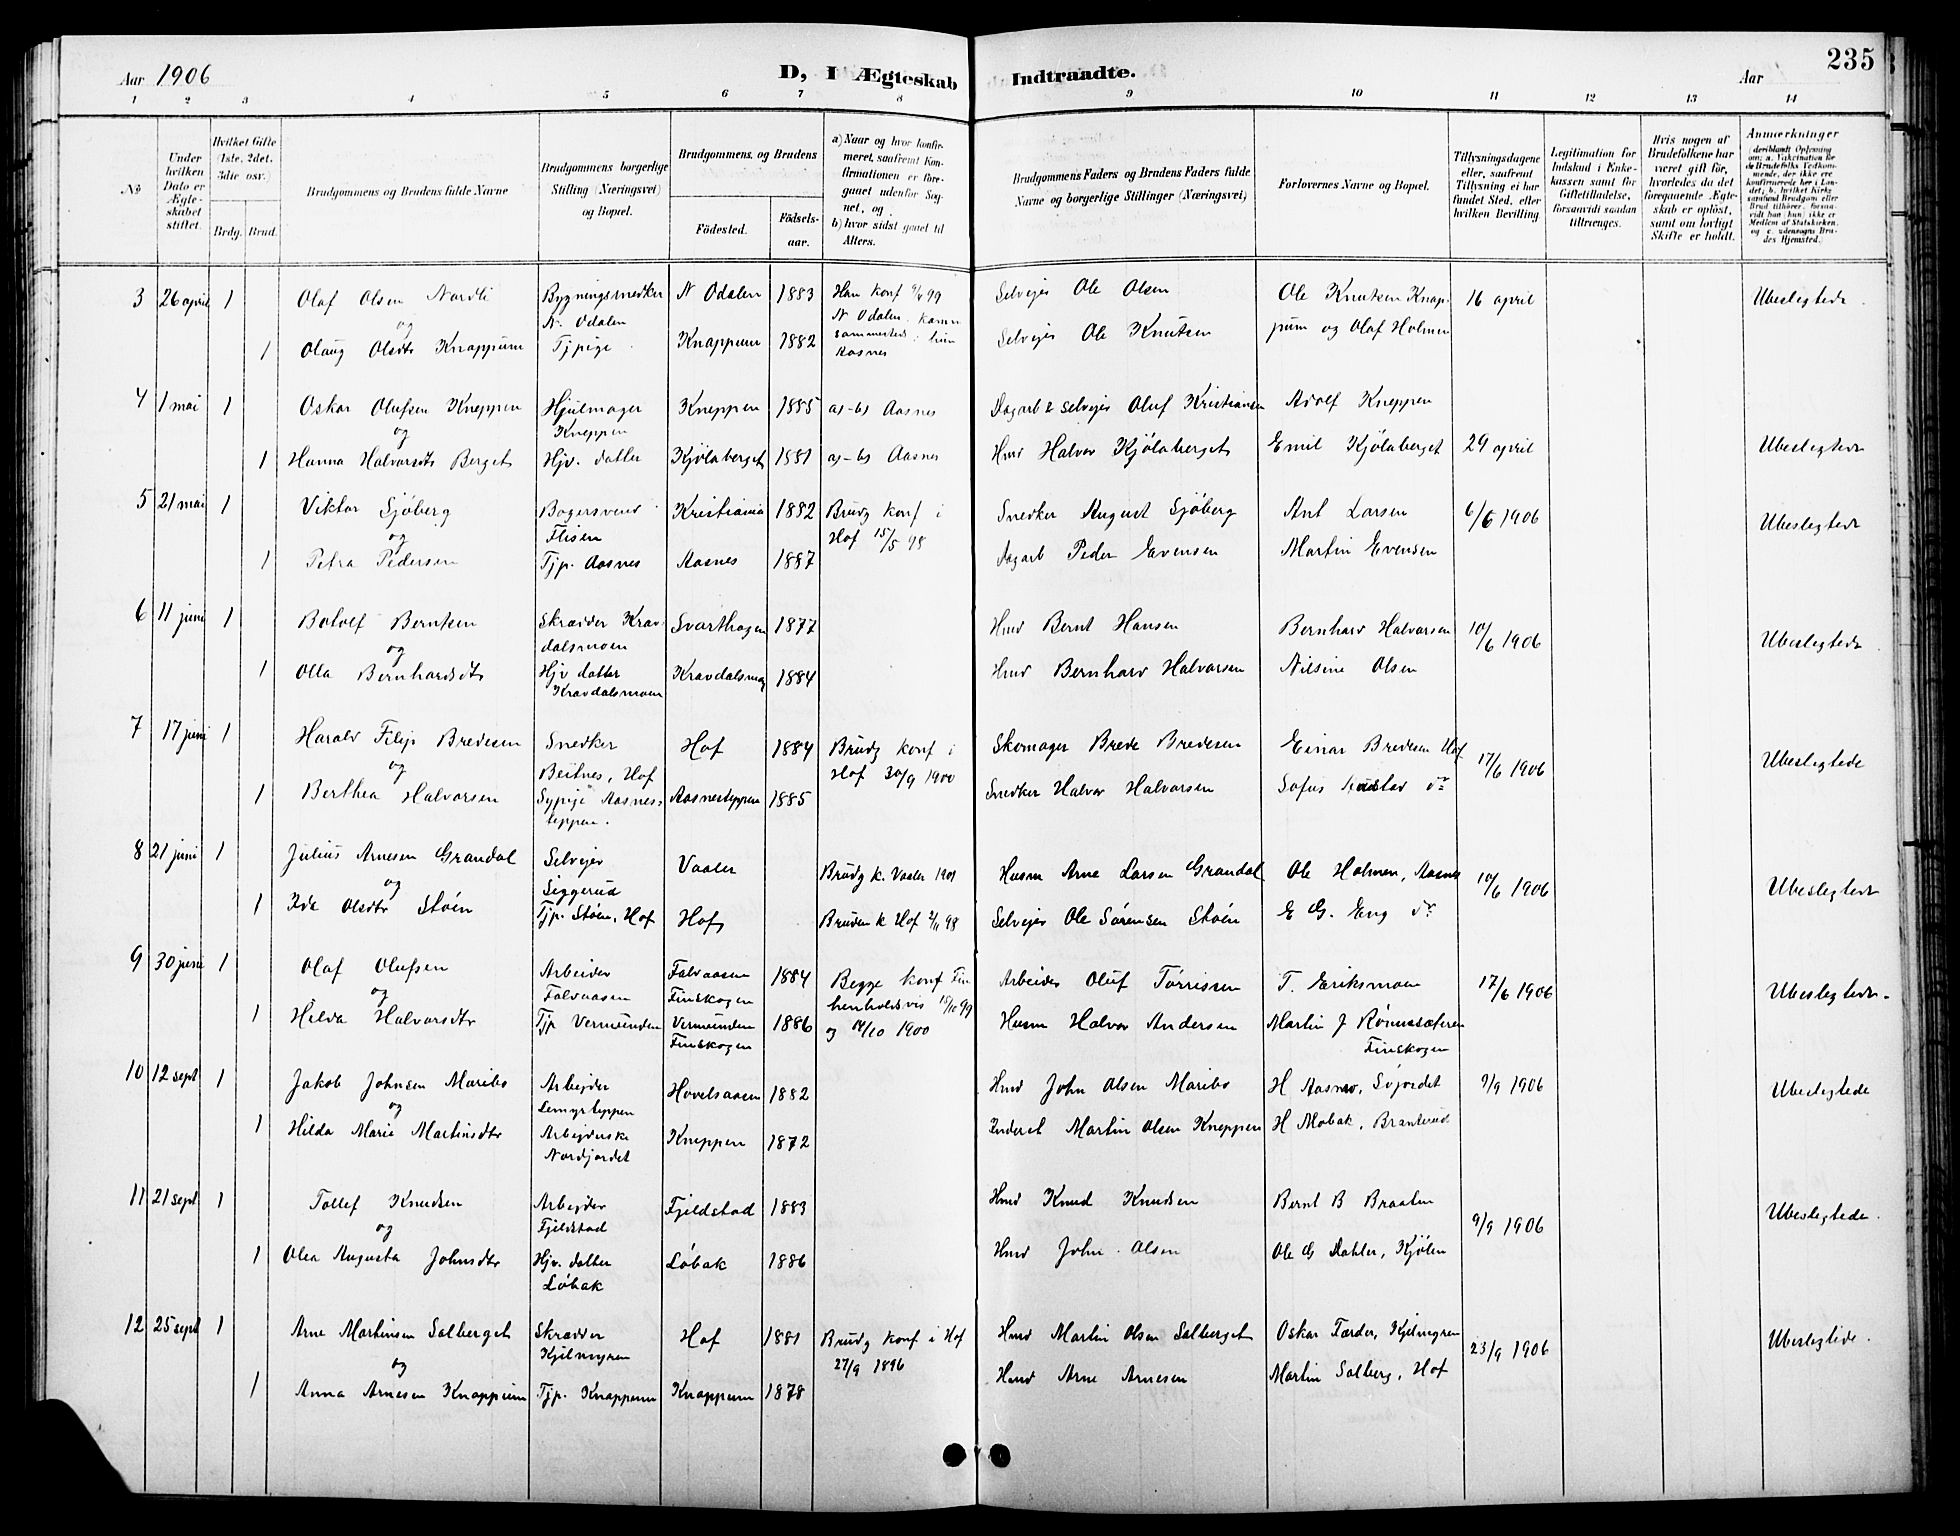 235
Aar 1906
D, I Ægteskab Indtraadte.
Aar
1 2 3 4 5 6 7 8 9 10 11 12 13 14
No
Under hvilken Dato er Ægteskabet stiftet.
Hvilket Gifte (1ste, 2det, 3die osv.)
Brdg. Brud.
Brudgommens og Brudens fulde Navne
Brudgommens borgerlige Stilling (Næringsvei) og Bopæl.
Brudgommens og Brudens
Födested.
Födselsaar.
a) Naar og hvor konfirmeret, saafremt Konfirmationen er foregaaet udenfor Sognet, og
b) hvor sidst gaaet til Alters.
Brudgommens Faders og Brudens Faders fulde Navne og borgerlige Stillinger (Næringsvei)
Forlovernes Navne og Bopæl.
Tillysningsdagene eller, saafremt Tillysning ei har fundet Sted, efter hvilken Bevilling
Legitimation for Indskud i Enkekassen samt for Giftetilladelse, forsaavidt saadan tiltrænges.
Hvis nogen af Brudefolkene har været gift før, hvorledes da det foregaaende Ægteskab er opløst, samt om lovligt Skifte er holdt.
Anmærkninger
3 26 april 1 Olaf Olsen Nordli Bygningssnedker N. Odalen N Odalen 1883 Han konf 99 N Odalen Selvejer Ole Olsen Ole Knutsen Knappum og Olaf Holmen 16 april Ubeslegtede
og
1 Olaug Olsdtr Knappum Tjpige Knappum 1882 Aasnes Selvejer Ole Knutsen
4 1 mai 1 Oskar Olufsen Kneppen Hjulmager Kneppen Kneppen 1885 a)-b) Aasnes Dagarb & selvejer Oluf Kristiansen Adolf Kneppen
og
1 Hanna Halvorsdtr Berget Hjv. datter Kjölaberget 1881 a)-b) Aasnes Hmd Halvor Kjölaberget Emil Kjölaberget 29 april Ubeslegtede
5 21 mai 1 Viktor Sjöberg Bagersvend Flisen Kristiania 1882 Brudg konf i Hof 15/5 98 Snedker August Sjöberg Ant Larsen 6/6 1906 Ubeslegtede
og
1 Petra Pedersen Tjp. Aasnes Aasnes 1887 Dagarb Peder Evensen Martin Evensen
6 11 juni 1 Botolf Berntsen Skrædder Kravdalsmoen Svarthagen 1877 Hmd Bernt Hansen Bernhard Halvorsen 10/6 1906 Ubeslegtede
og
1 Olla Bernhardsdtr Hjv datter Kravdalsmoen Kravdalsmoen 1884 Hmd Bernhard Halvorsen Nilsine Olsen
7 17 juni 1 Harald Filip Bredesen Snedker Beitnes, Hof Hof 1884 Brudg konf i Hof 30/9 1900 Skomager Brede Bredesen Einar Bredesen Hof 17/6 1906 Ubeslegtede
og
1 Berthea Halvorsen Sypige Aasnesteppen. Aasnesteppen 1885 Snedker Halvor Halvorsen Sofus do
8 21 juni 1 Julius Arnesen Grandal Selvejer Siggerud Vaaler Brudg k. Vaaler 1901 Husm Arne Larsen Grandal Ole Holmen, Aasnes 10/6 1906 Ubeslegtede
og
1 Ida Olsdtr Stöen Tjp. Stöen, Hof Hof Bruden k Hof 98 Selvejer Ole Sörensen Stöen E G. Eng do
9 30 juni 1 Olaf Olufsen Arbeider Falvaasen Falvaasen Finskogen 1884 Begge konf Fin henholdsvis 15/10 99 og 14/10 1900 Arbeider Oluf Törrissen T. Eriksmoen 17/6 1906 Ubeslegtede.
og
1 Hilda Halvorsdtr Tjp Vermunden Vermunden Finskogen 1886 Husm Halvor Andersen Martin J Rönnsæteren Finskogen
10 12 sept 1 Jakob Johnsen Maribo Arbejder Lemyrteppen Hovelsaasen 1882 Hmd John Olsen Maribo H Aasnes, Söjordet 9/9 1906 Ubeslegtede
og
1 Hilda Marie Martinsdtr Arbejderske Nordjordet Kneppen 1872 Inderst Martin Olsen Kneppen H Mobak, Branterud
11 21 sept 1 Tollef Knudsen Arbejder Fjeldstad Fjeldstad 1883 Hmd Knud Knudsen Bernt B Braaten 9/9 1906 Ubeslegtede.
og
1 Olea Augusta Johnsdtr Hjv. datter Löbak Löbak 1886 Hmd John Olsen Ole G Dahler, Kjölen
12 25 sept 1 Arne Martinsen Solberget Skrædder Kjelmyren Hof 1881 Brudg konf i Hof 27/9 1896 Hmd Martin Olsen Solberget Oskar Færder, Kjelmyren 23/9 1906 Ubeslegtede.
og
1 Anna Arnesen Knappum Tjp. Knappum Knappum 1878 Hmd Arne Arnesen Martin Solberg, Hof